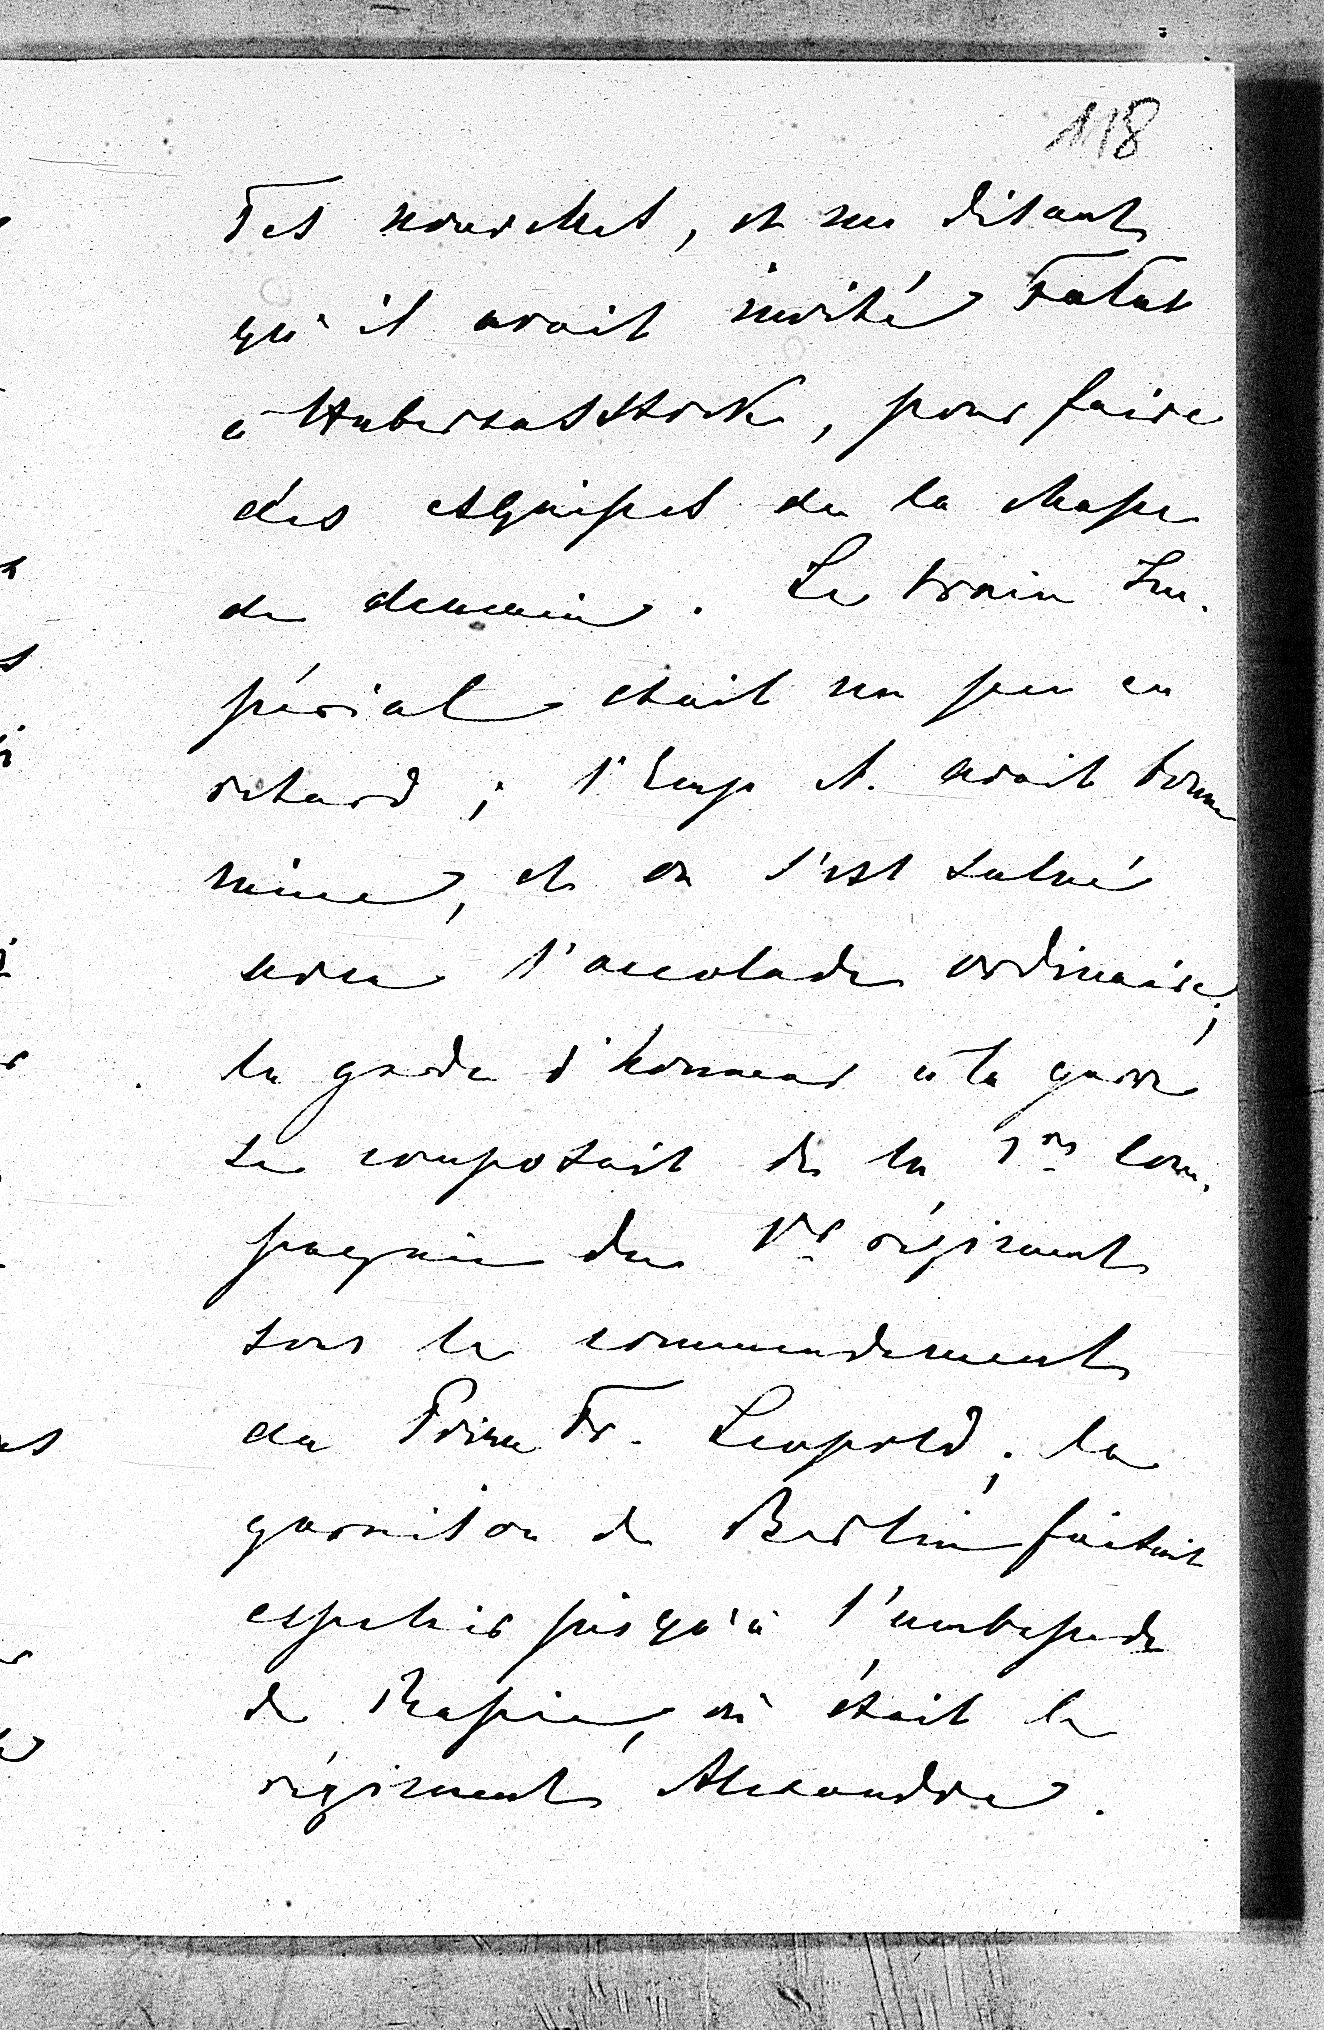 118
ses nouvelles, et me disant
qu'il avait invité Falat
à Hubertusstock, pour faire
des esquisses de la chasse
de demain. Le train Im-
périal etait un peu en
retard ; l'Emp A. avait bonne
mine, et on s'est salué
avec l'accolade ordinaire;
la garde d'honneur à la gare
se composait de la 1re Com-
pagnie du 1er régiment
sous le commendement
du Prince Fr. Leopold; la
garnison de Berlin faisait
espalier jusqu'à l'ambassade
de Russie, où était le
régiment Alexandre.